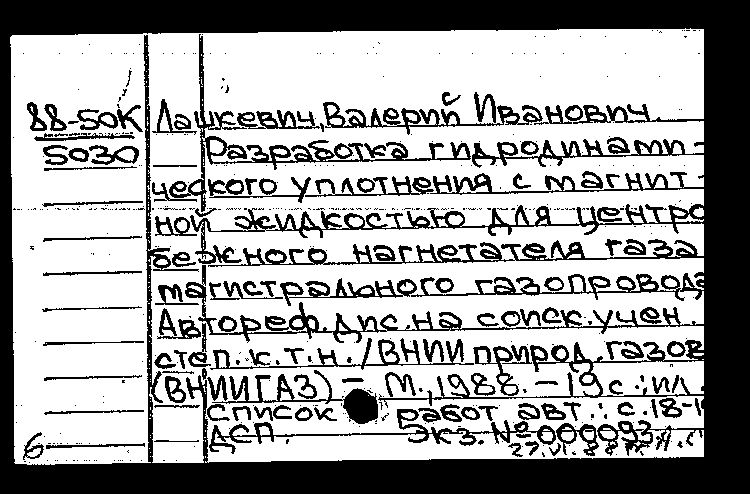 88-50К Лашкевич, Валерий Иванович.
5030 Разработка гидродинами-
ческого уплотнения с магнит-
ной жидкостью для центро
бежного нагнетателя газа
магистрального газопровода
Автореф.дис.на соиск.учен.
степ.к.т.н./ВНИИ природ.газов
(ВНИИГАЗ) – М.,1988.–19с.:ил.
список работ авт.: с.18-1
ДСП. Экз.№000093.
6 27.VI.88